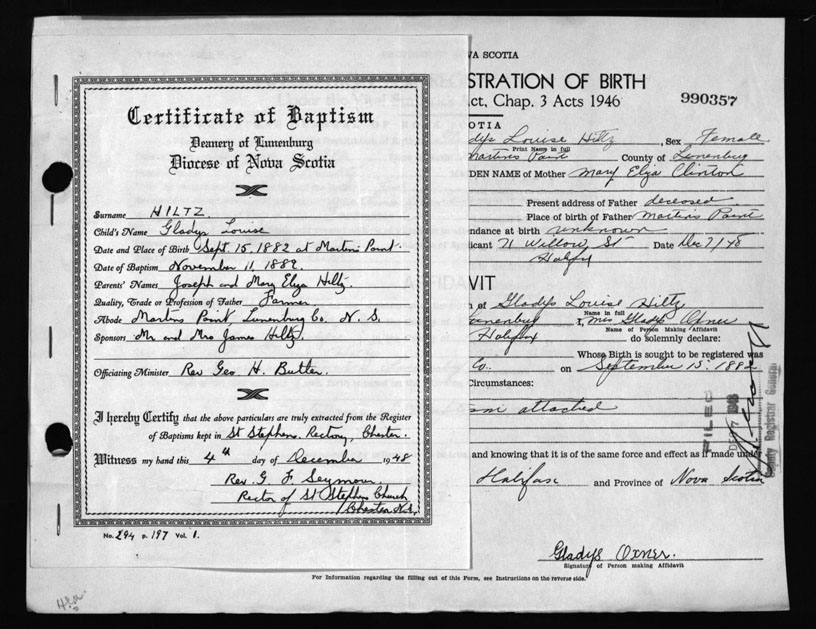 Certificate of Baptism
Deanery of Lunenburg
Diocese of Nova Scotia
Surname HILTZ.
Child's Name Gladys Louise
Date and Place of Birth Sept. 15, 1882 at Martins Point.
Date of Baptism November 11, 1882.
Parents' Names Joseph and Mary Eliza Hiltz.
Quality, Trade or Profession of Father Farmer
Abode Martins Point Lunenburg Co. N. S.
Sponsors Mr and Mrs James Hiltz.
Officiating Minister Rev Geo. H. Butler.
I hereby Certify that the above particulars are truly extracted from the Register
of Baptisms kept in St Stephens Rectory, Chester.
Witness my hand this 4th day of December 1948
Rev. G. F Seymour.
Rector of St Stephens Church
Chester N.S.
No. 294 p. 197 Vol. 1.
VA SCOTIA
STRATION OF BIRTH
ct, Chap. 3 Acts 1946
990357
COTIA
dys Louise Hiltz, Sex Female
Print Name in full
Martins Point County of Lunenburg
DEN NAME of Mother Mary Eliza Clinton
Present address of Father deceased
Place of birth of Father Martins Point
ndance at birth unknown
licant 71 Willow St Date Dec 7/48
Halifax
VIT
of Gladys Louise Hiltz
Name in full
Lunenburg I, Mrs Gladys Oxner
Name of Person Making Affidavit
Halifax do solemnly declare:
Co. Whose Birth is sought to be registered was
on September 15: 1882
Circumstances:
attached
FILED
Deputy Registrar General
and knowing that it is of the same force and effect as if made under
Halifax and Province of Nova Scotia
Gladys Oxner.
Signature of Person making Affidavit
For Information regarding the filling out of this Form, see Instructions on the reverse side.